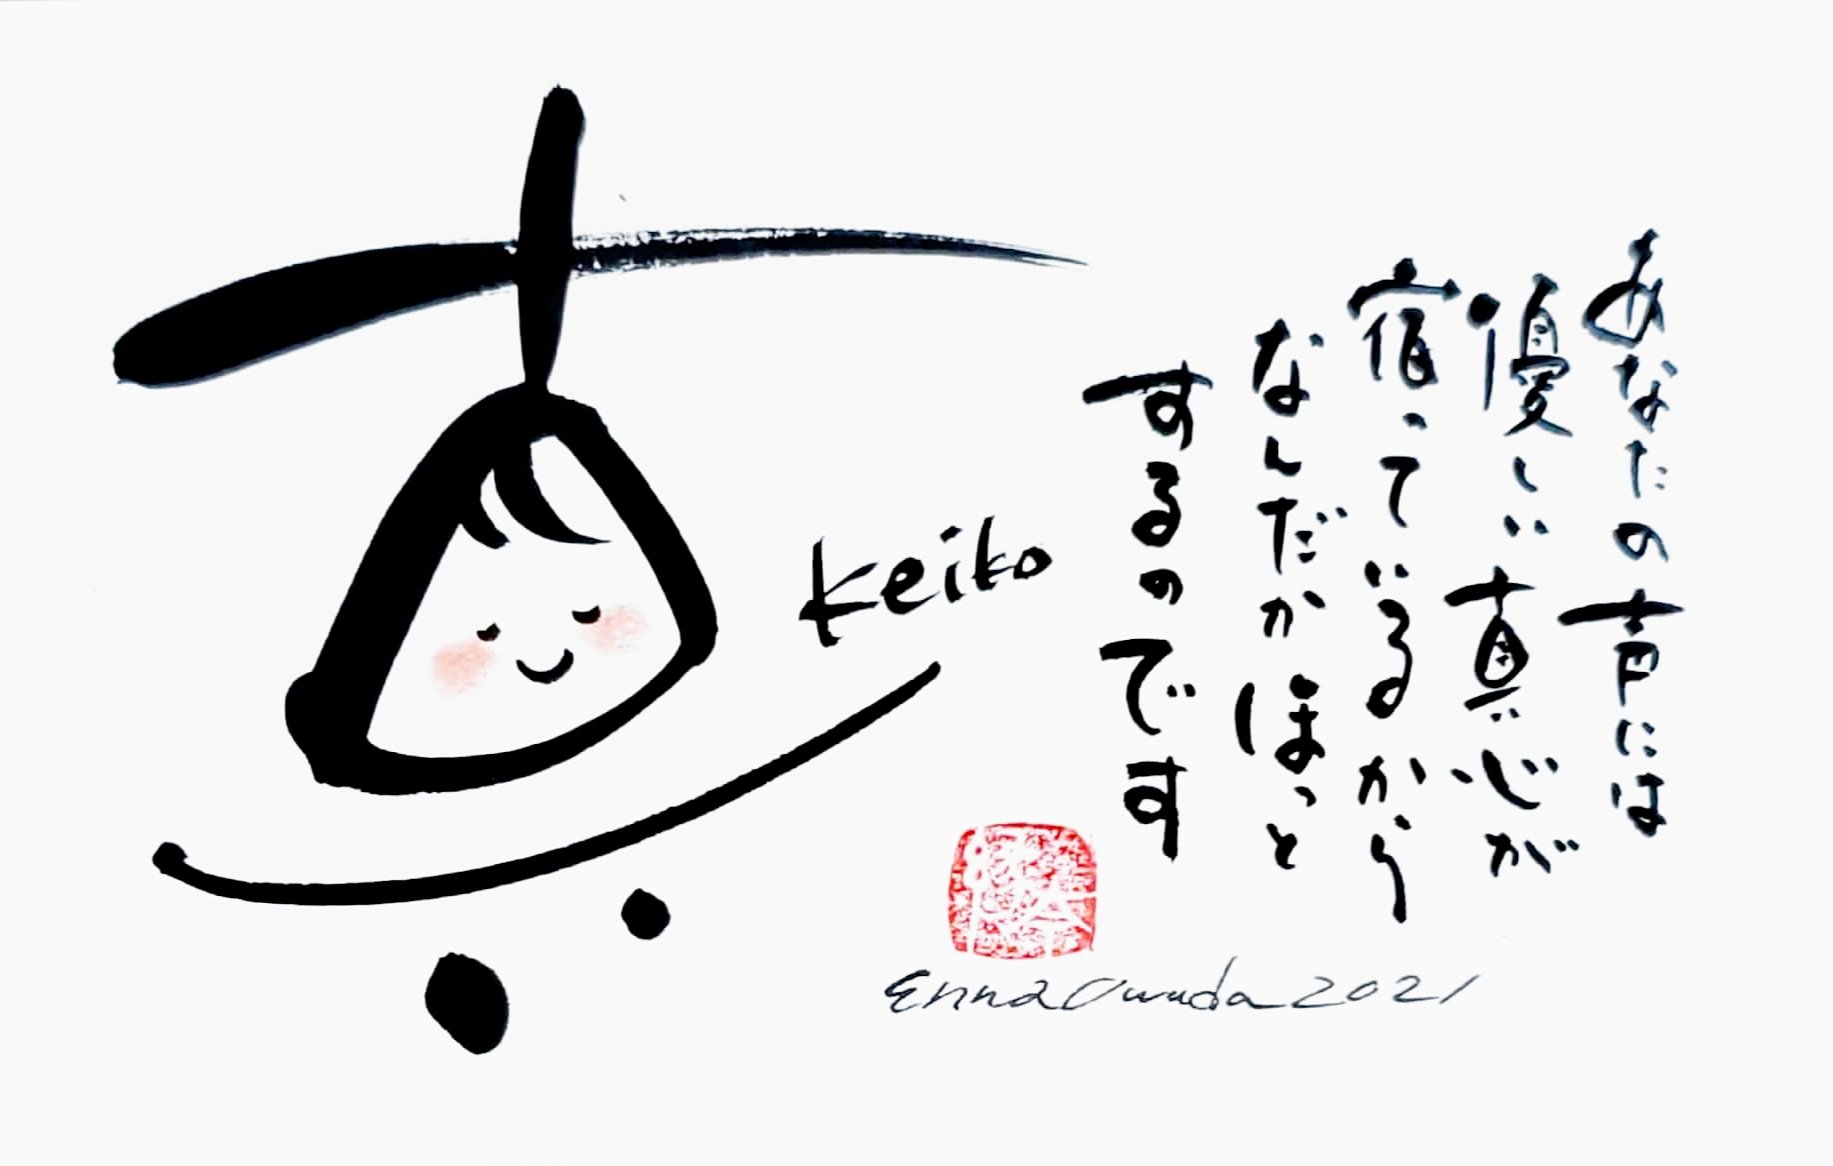 真
Keiko
あなたの声には
優しい真心が
宿っているから
なんだかほっと
するのです
Enna Owada 2021